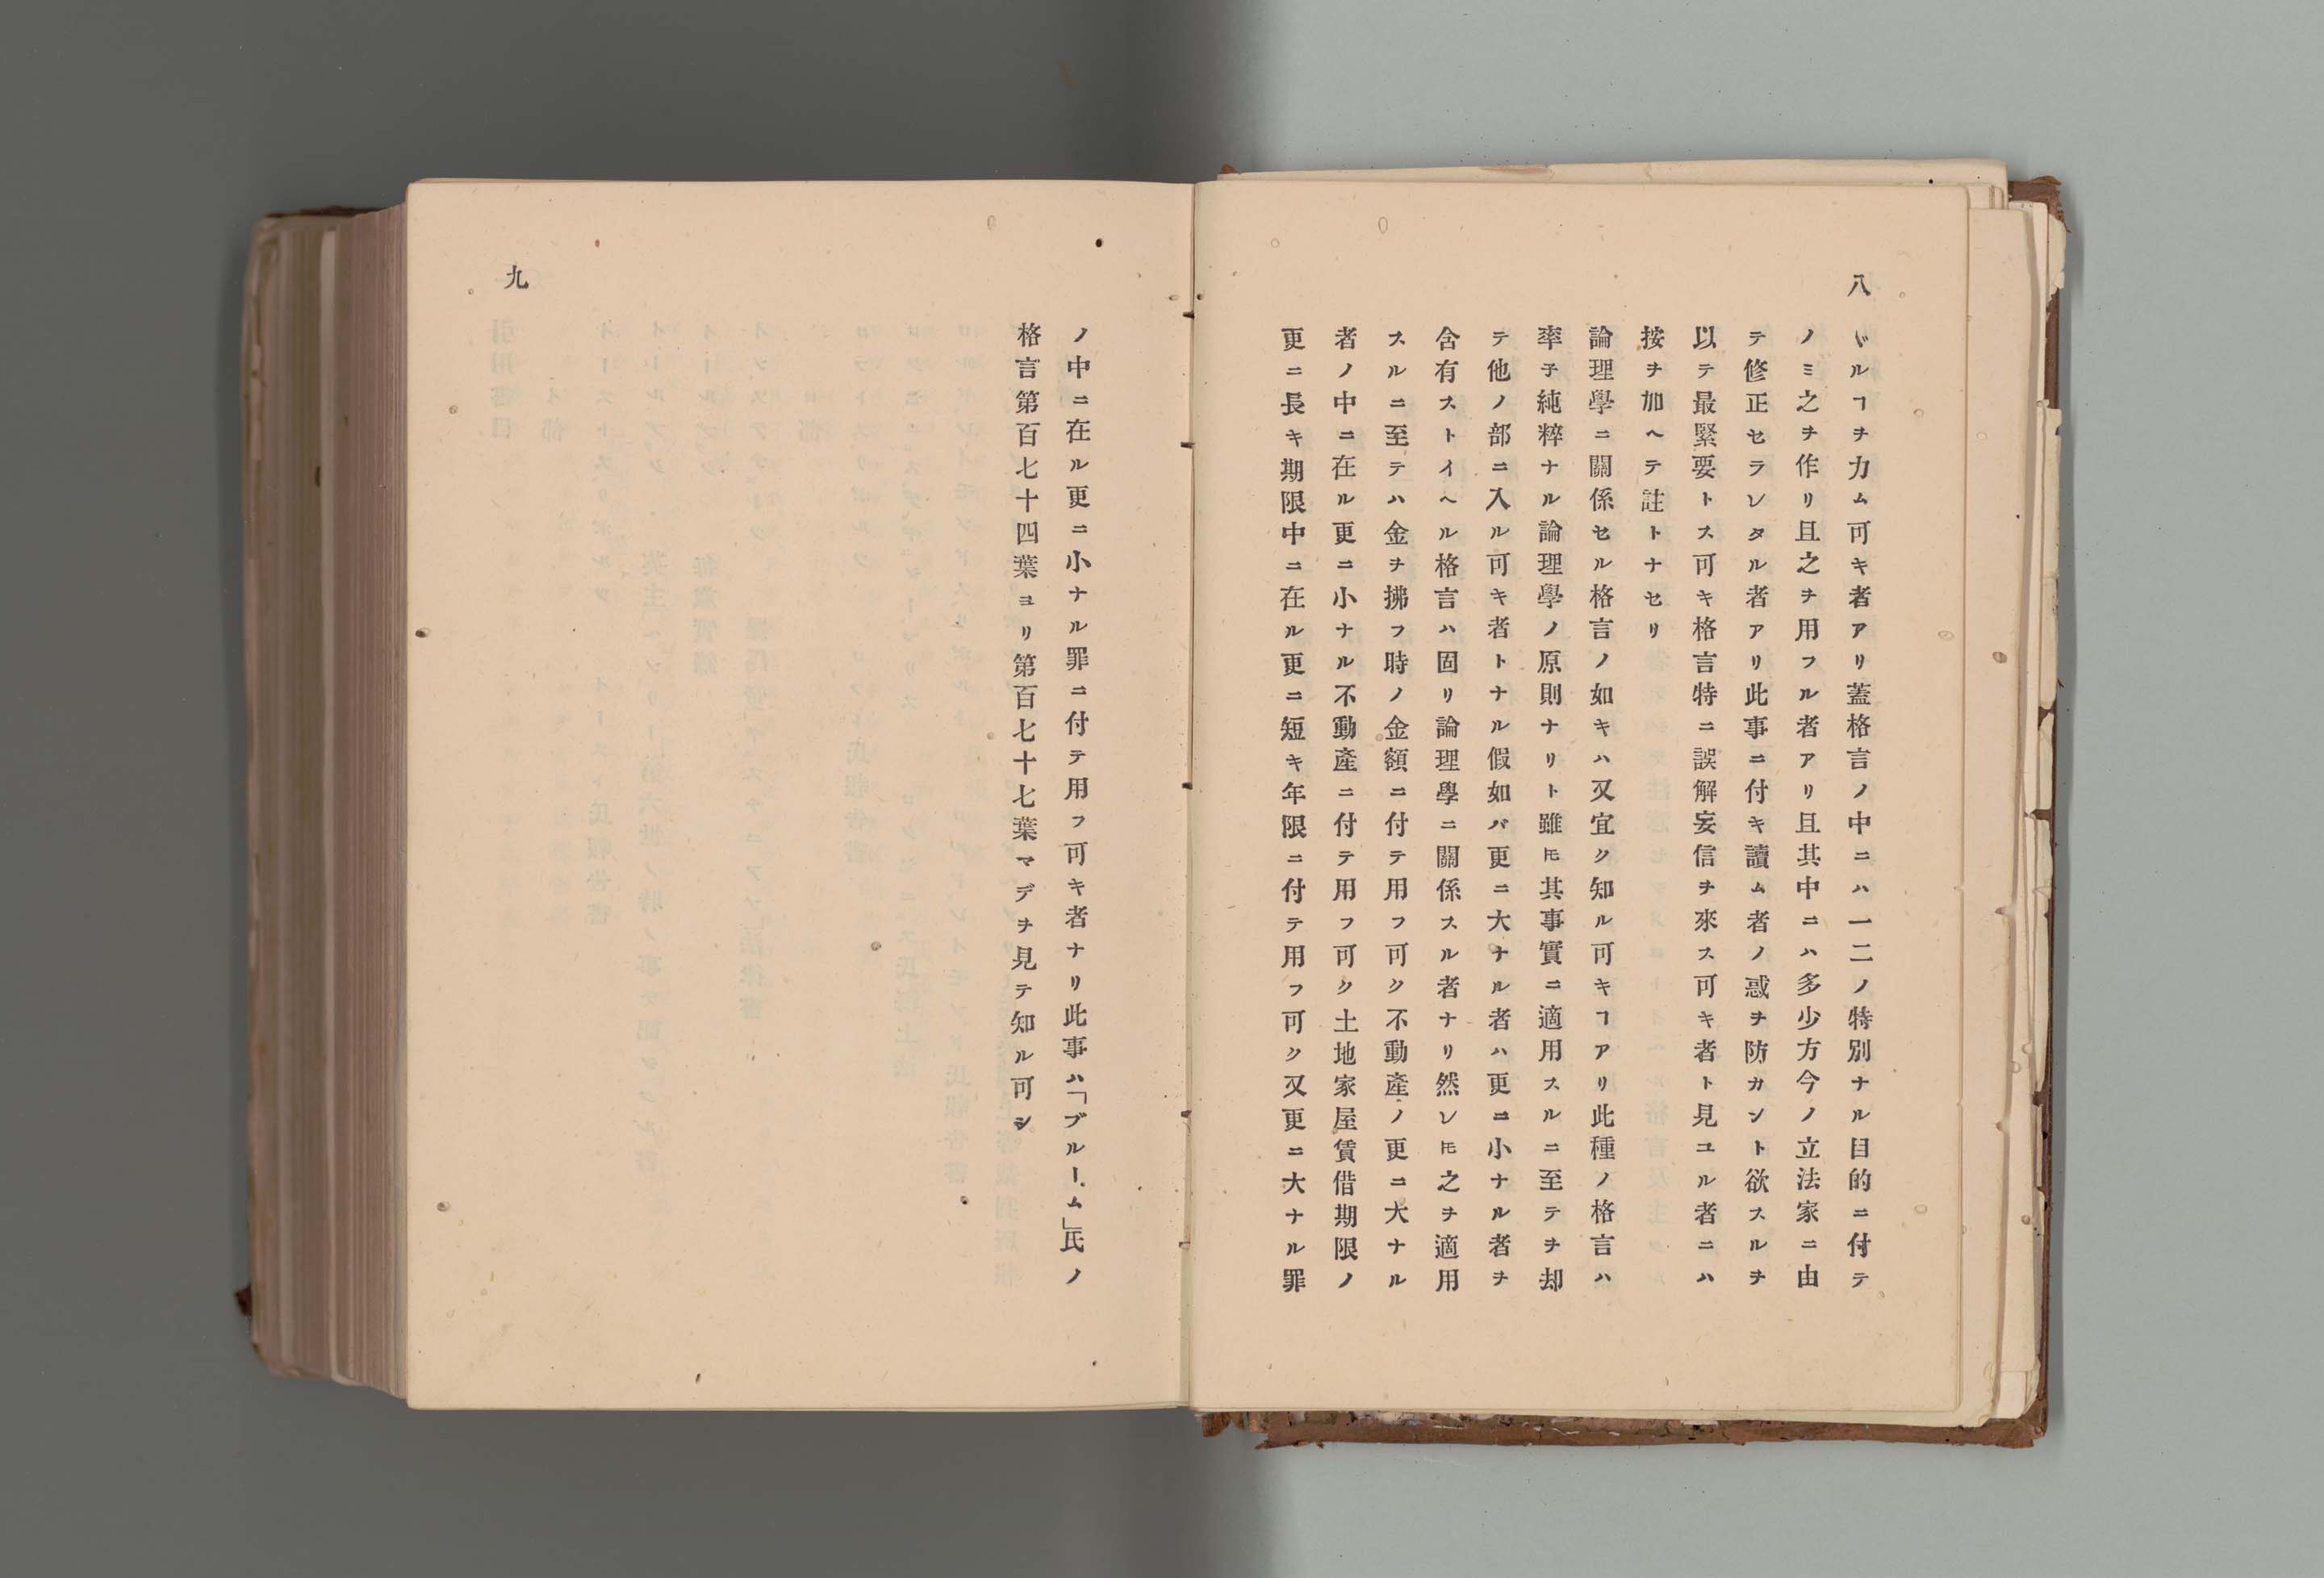 八
ドルヿヲ力ム可キ者アリ蓋格言ノ中ニハ一二ノ特別ナル目的ニ付テ
ノミ之ヲ作リ且之ヲ用フル者アリ且其中ニハ多少方今ノ立法家ニ由
テ修正セラレタル者アリ此事ニ付キ讀ム者ノ惑ヲ防カント欲スルヲ
以テ最緊要トス可キ格言特ニ誤解妄信ヲ來ス可キ者ト見ユル者ニハ
按ヲ加ヘテ註トナセリ
論理學ニ關係セル格言ノ如キハ又宜ク知ル可キヿアリ此種ノ格言ハ
率子純粹ナル論理學ノ原則ナリト雖𪜈其事實ニ適用スルニ至テヲ却
テ他ノ部ニ入ル可キ者トナル假如バ更ニ大ナル者ハ更ニ小ナル者ヲ
含有ストイヘル格言ハ固リ論理學ニ關係スル者ナリ然レ𪜈之ヲ適用
スルニ至テハ金ヲ拂フ時ノ金額ニ付テ用フ可ク不動產ノ更ニ大ナル
者ノ中ニ在ル更ニ小ナル不動產ニ付テ用フ可ク土地家屋賃借期限ノ
更ニ長キ期限中ニ在ル更ニ短キ年限ニ付テ用フ可ク又更ニ大ナル罪
九
ノ中ニ在ル更ニ小ナル罪ニ付テ用フ可キ者ナリ此事ハ「ブルーム」氏ノ
格言第百七十四葉ヨリ第百七十七葉マデヲ見テ知ル可シ